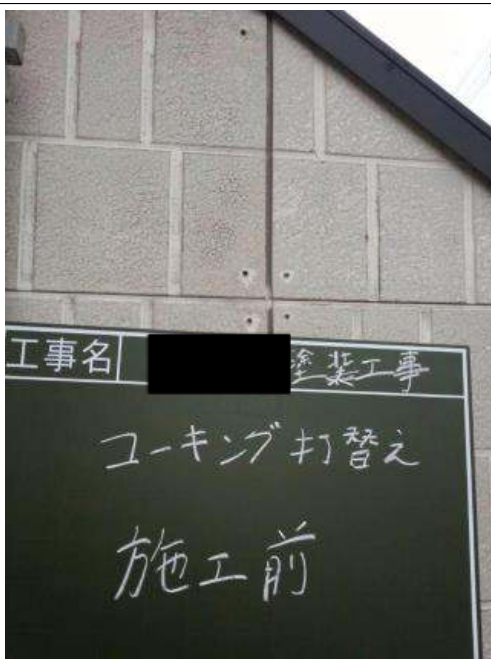 工事名 塗装工事
コーキング打替え
施工前